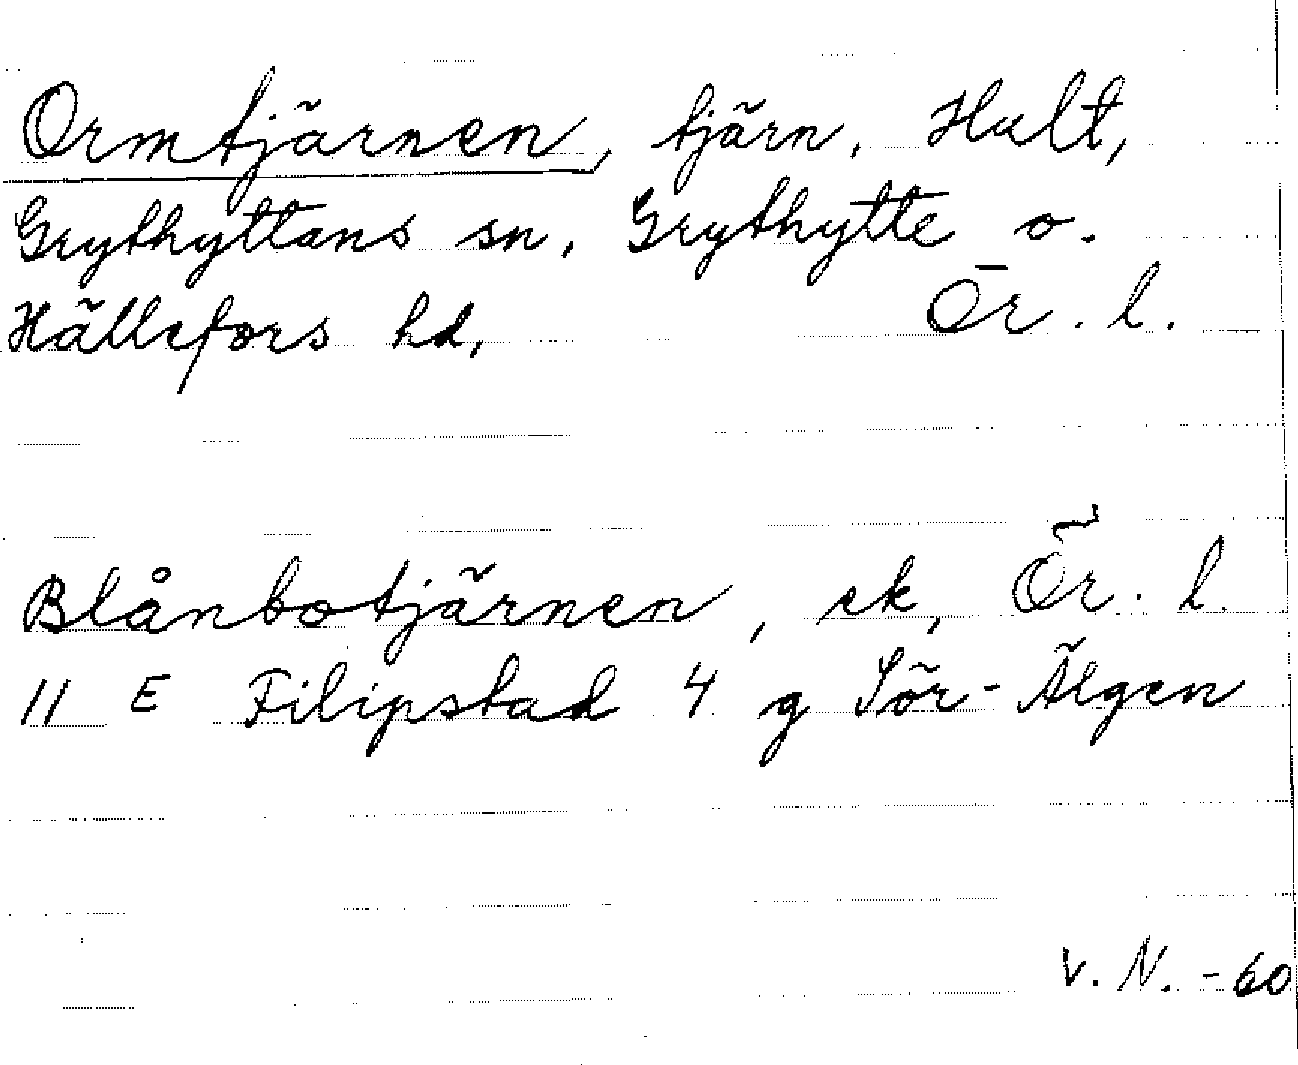 Ormtjärnen, tjärn, Hult,
Grythyttans sn, Grythytte o.
Hällefors hd, Ör. l.
Blånbotjärnen, ek, Ör. l.
11 E Filipstad 4 g Sör-Älgen
V. N. -60